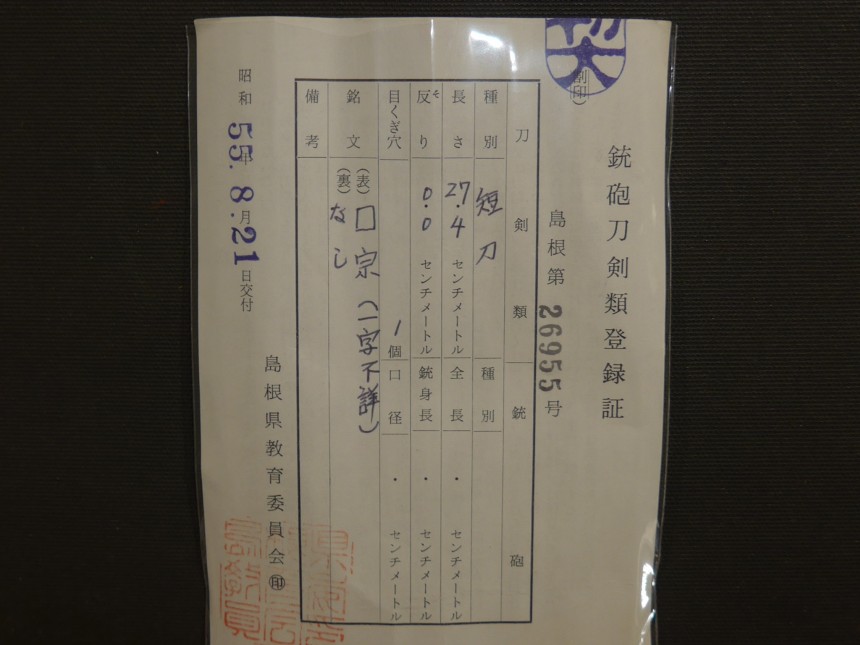 銃砲刀剣類登録証
(割印)
島根第26955号
刀剣類
銃砲
種別 短刀
種別
長さ 27.4 センチメートル
全長 ・ センチメートル
反り 0.0 センチメートル
そ
銃身長 ・ センチメートル
目くぎ穴 1個
口径 ・ センチメートル
銘文 (表) □宗(一字不詳)
(裏) なし
備考
昭和55年8月21日交付
島根県教育委員会 印